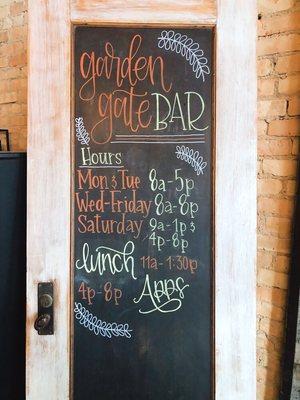 garden
gate BAR
Hours
Mon & Tue 8a-5p
Wed-Friday 8a-8p
Saturday 9a-1p &
4p-8p
lunch 11a-1:30p
4p-8p Apps